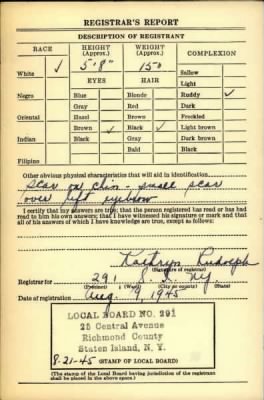 REGISTRAR'S REPORT
DESCRIPTION OF REGISTRANT
RACE HEIGHT (Approx.) WEIGHT (Approx.) COMPLEXION
White ✓ 5' 8" 150 Sallow
EYES HAIR Light
Negro Blue Blonde Ruddy ✓
Gray Red Dark
Oriental Hazel Brown Freckled
Brown ✓ Black ✓ Light brown
Indian Black Gray Dark brown
Bald Black
Filipino
Other obvious physical characteristics that will aid in identification
Scar on chin - small scar
over left eyebrow
I certify that my answers are true; that the person registered has read or has had
read to him his own answers; that I have witnessed his signature or mark and that
all of his answers of which I have knowledge are true, except as follows:
Kathryn Rudolph
(Signature of registrar)
Registrar for 291 S. I. N.Y.
(Precinct) (Ward) (City or county) (State)
Date of registration Aug. 9, 1945
LOCAL BOARD NO. 291
25 Central Avenue
Richmond County
Staten Island, N. Y.
8-21-45 (STAMP OF LOCAL BOARD)
(The stamp of the Local Board having jurisdiction of the registrant
shall be placed in the above space.)